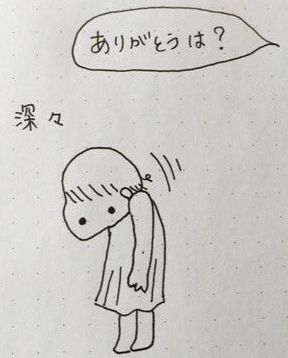 ありがとうは?
深々